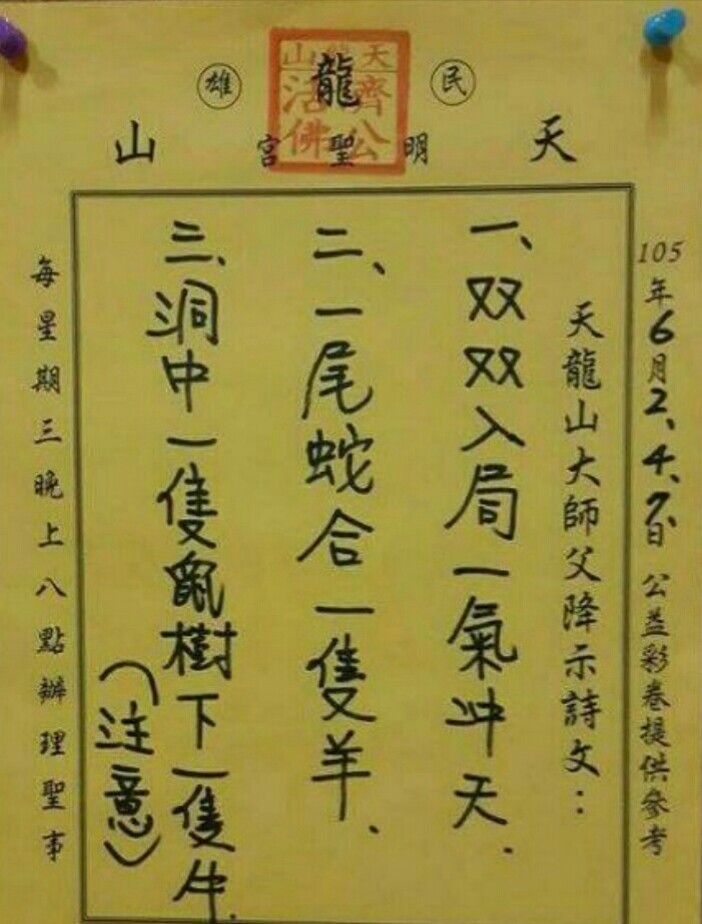 民 雄
天 龍 山
明聖宮
天龍山
濟公
活佛
105年6月2、4、7日 公益彩卷提供參考
天龍山大師父降示詩文：
一、双双入局一氣冲天.
二、一尾蛇合一隻羊、
三、洞中一隻鼠樹下一隻牛.
(注意)
每星期三晚上八點辦理聖事